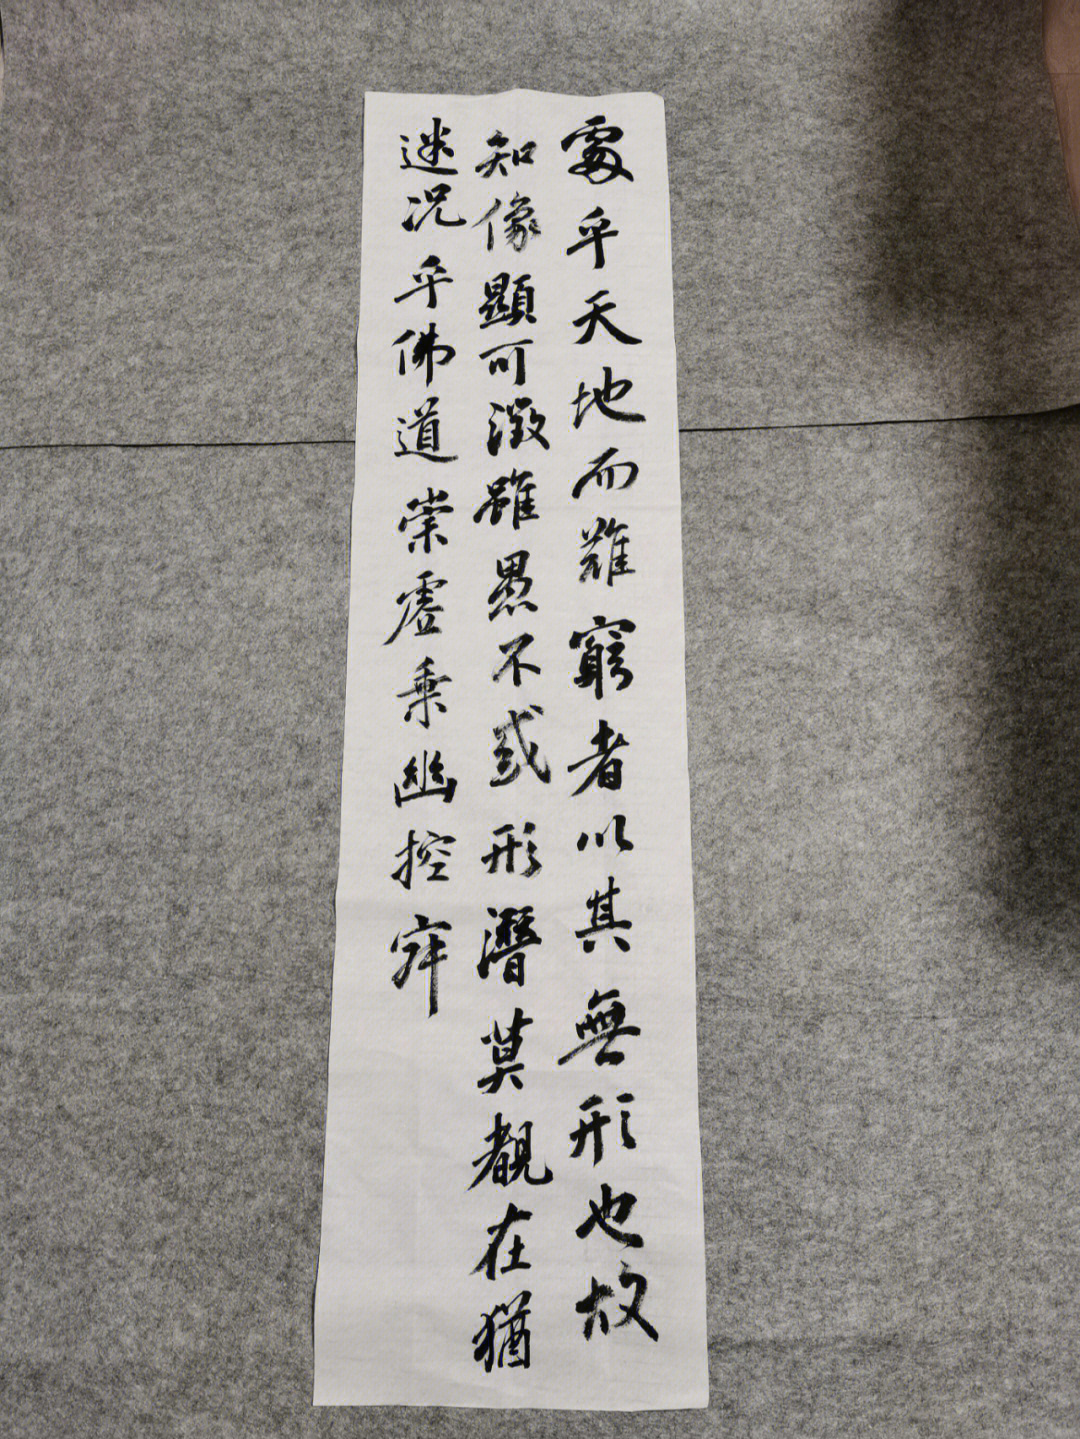 處乎天地而難窮者以其無形也故
知像顯可徵雖愚不惑形潛莫覩在猶
迷況乎佛道崇虛乘幽控寂